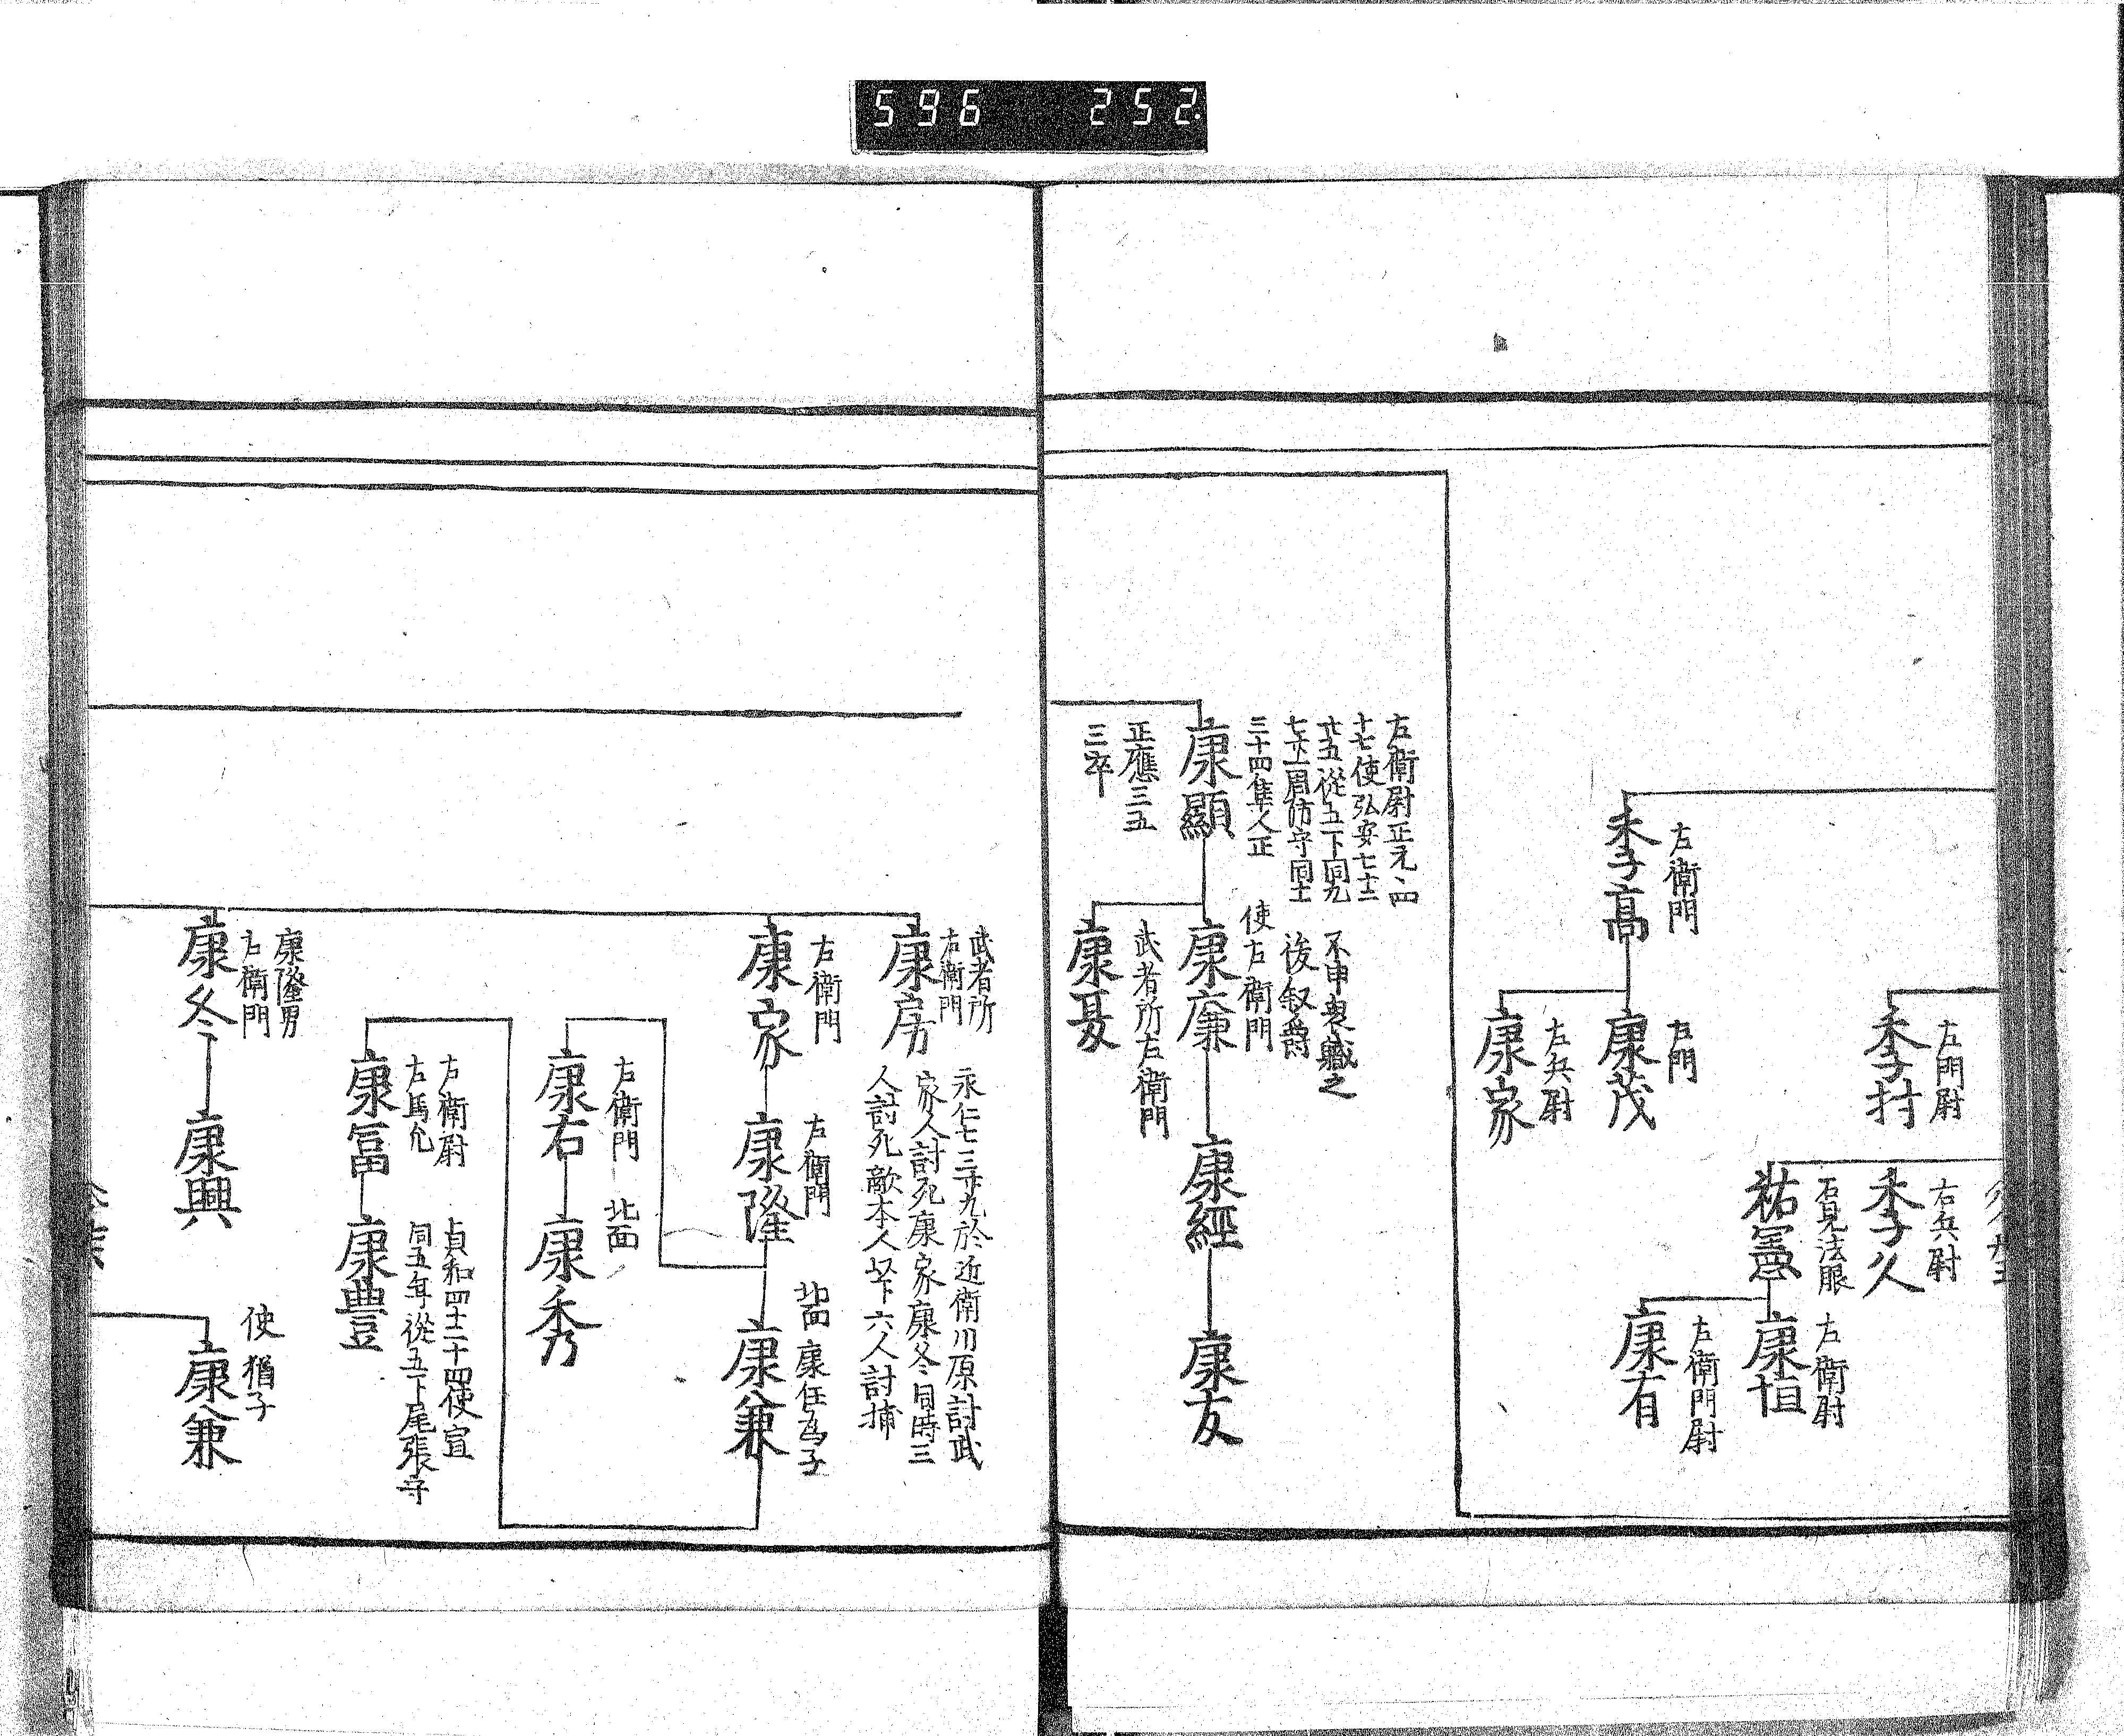 596 252
左門尉
季村
右兵尉
季久
石見法眼
祐憲
左衛尉
康恒
左衛門尉
康有
左衛門
季高
左門
康茂
左兵尉
康家
左衛尉正元二四
十七使弘安七十二
廿五從五下同九
三十四隼人正
康顯
正應三五
三卒
使左衛門
後叙爵
康廉
康經
康友
武者所左衛門
康夏
武者所
右衛門
康房
永仁七三廿九於近衛川原討武
家人討死康家康冬同時三
人討死敵本人以下六人討捕
右衛門
康家
右衛門
康隆
北面
康任為子
康兼
右衛門
北面
康右
康秀
右衛尉
右馬允
康冨
貞和四十二十四使宣
同五年從五下尾張守
康豊
康隆男
右衛門
康冬
康興
使
猶子
康兼